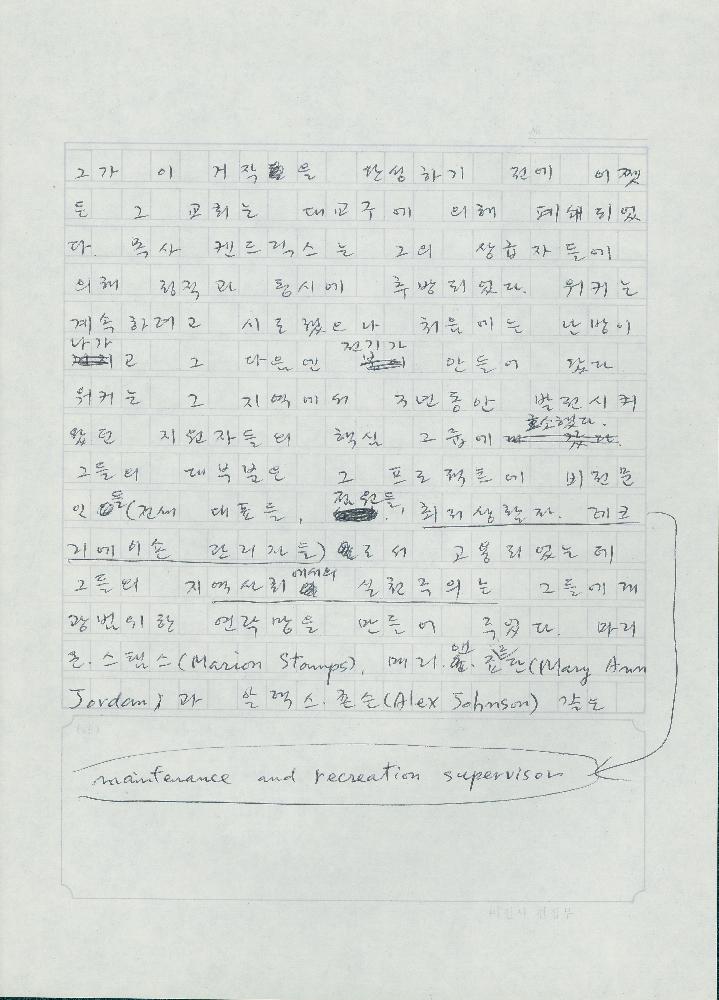 그가 이 거작을 완성하기 전에 어쨋
든 그 교회는 대교구에 의해 폐쇄되었
다. 목사 켄드릭스는 그의 상급자들에
의해 정직과 동시에 추방되었다. 워커는
계속 하려고 시도했으나 처음에는 난방이
나가고 그 다음엔 전기가 안들어 왔다.
워커는 그 지역에서 3년동안 발전시켜
왔던 지원자들의 핵심 그룹에 호소했다.
그들의 대부분은 그 프로젝트에 비전문
인들(전세 대표들, 직원들,
관리자들)로서 고용되었는데
그들의 지역사회에서의 실천주의는 그들에게
광범위한 연락망을 만들어 주었다. 마리
온.스탬스(Marion Stamps), 메리.앤.죠르단(Mary Ann
Jordan)과 알렉스.존슨(Alex Johnson) 같은
maintenance and recreation supervisors